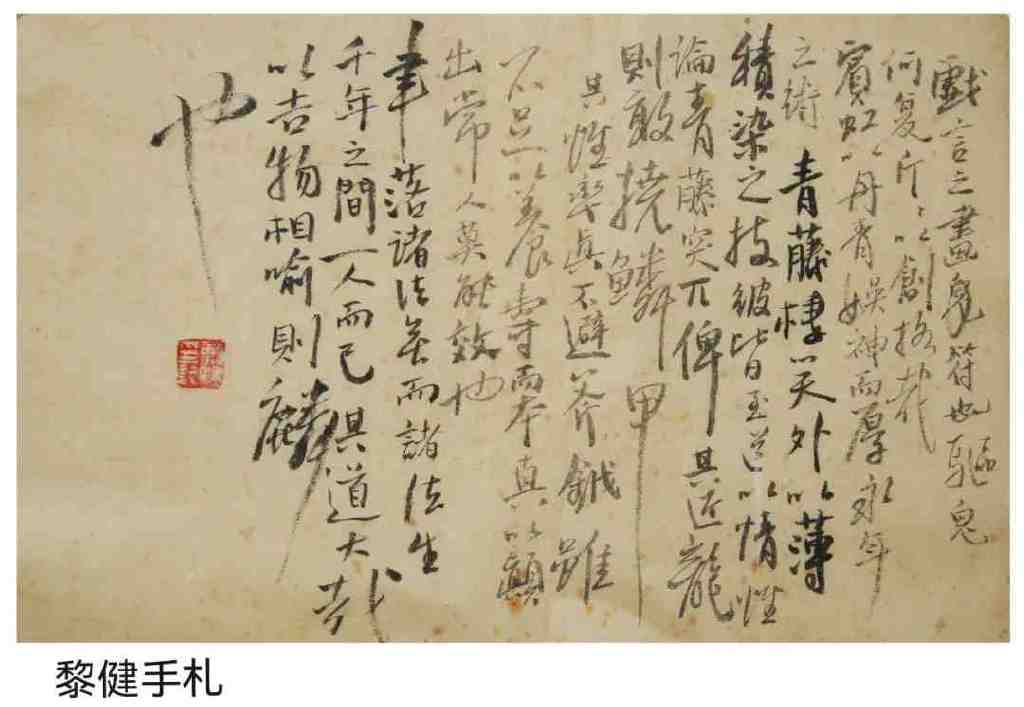 戲言之畫鬼符也驅鬼
何复斤斤以創格哉
賓虹以丹青娛神而厚永年
之術 青藤棲心天外以薄
積染之技 皆至道以情性
論青藤突兀俾其近龍
則敢撓鱗甲
其惟率真不避斧鉞雖
不足以養壽而本真以顛
出常人莫能效也
筆落諸法美而諸法生
千年之間一人而已 其道大哉
以吉物相喻則麟
也
黎健手札